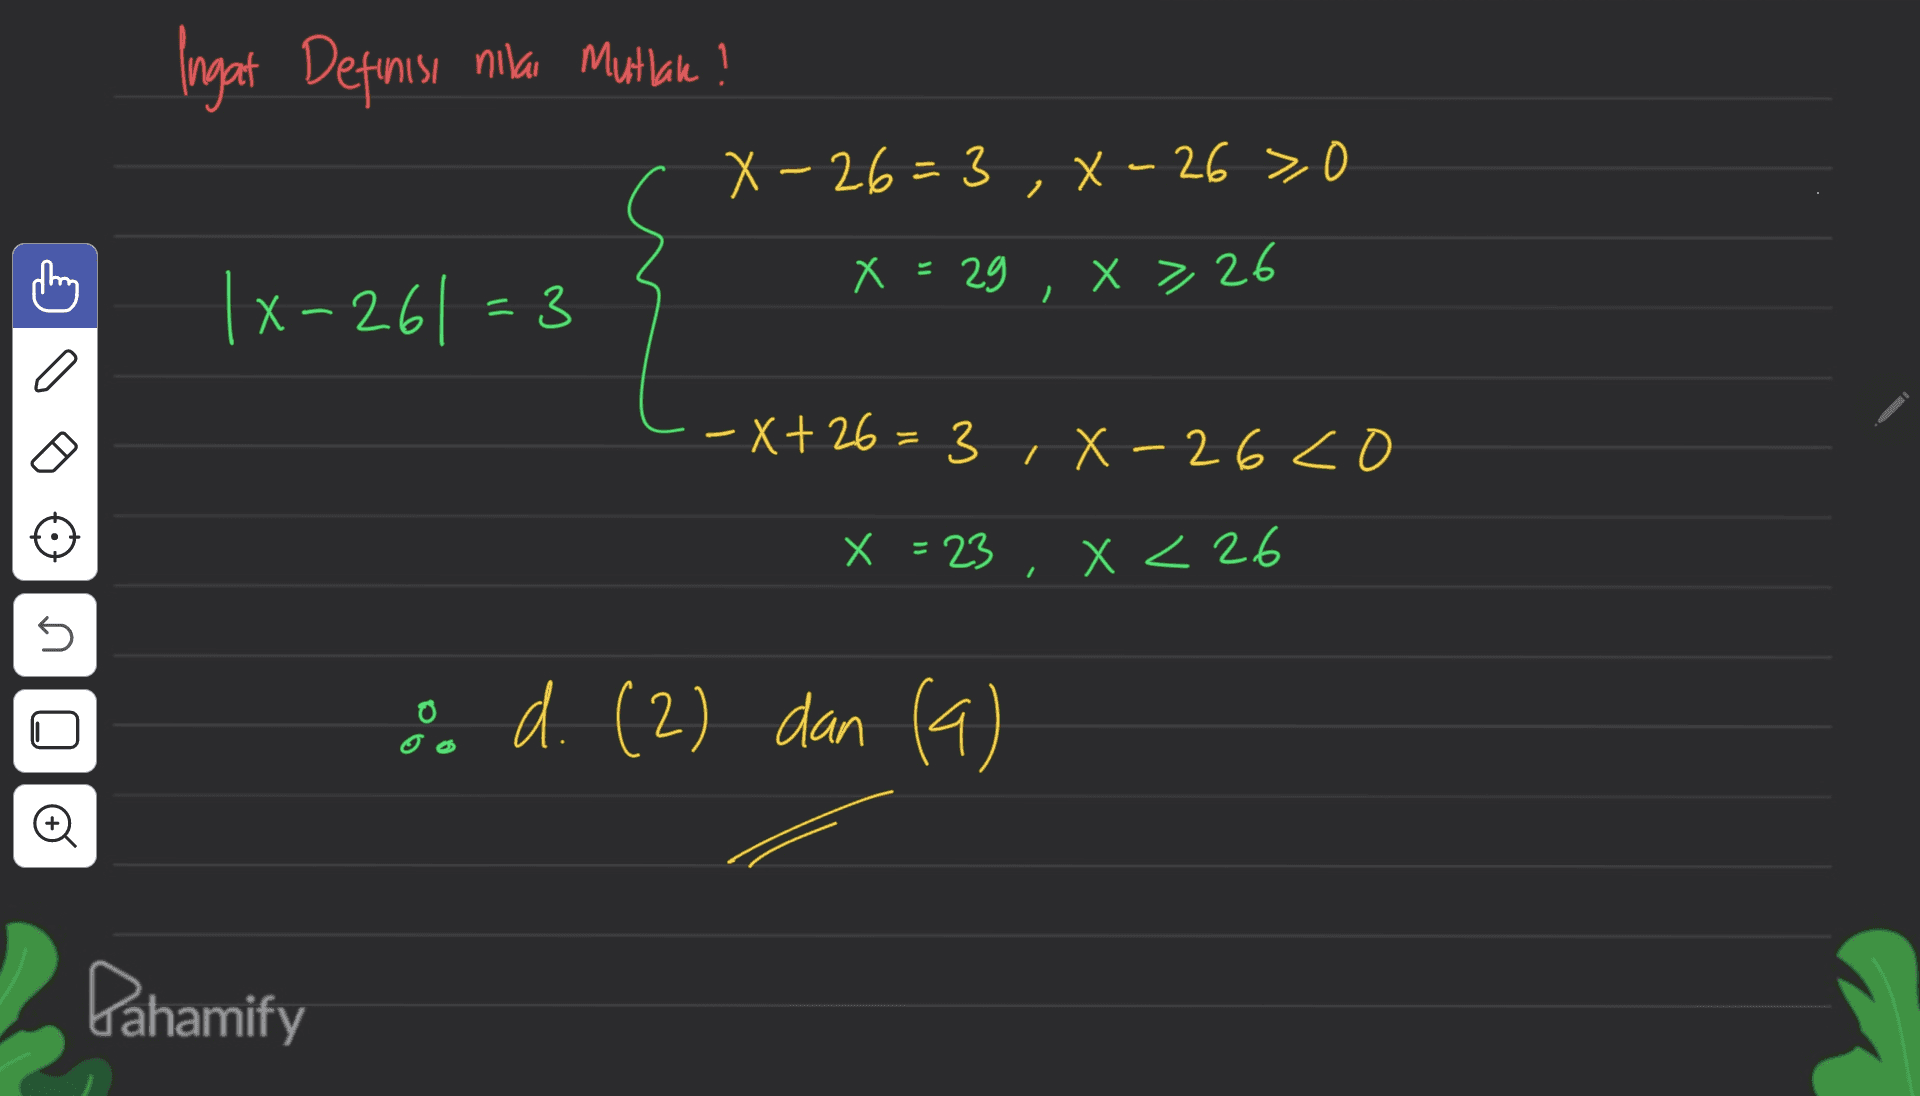 Ingat Definisi nilai Mutlak !
x - 26 = 3 , x - 26 ≥ 0
x = 29 , x ≥ 26
|x - 26| = 3
-x + 26 = 3 , x - 26 < 0
x = 23 , x < 26
∴ d. (2) dan (4)
Pahamify